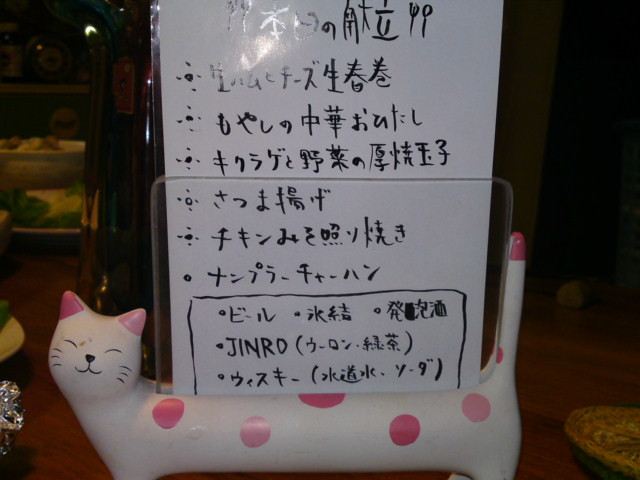 本日の献立
生ハムとチーズ生春巻
もやしの中華おひたし
キクラゲと野菜の厚焼玉子
さつま揚げ
チキンみそ照り焼き
ナンプラーチャーハン
ビール ・氷結 ・発泡酒
JINRO(ウーロン・緑茶)
ウィスキー(水道水、ソーダ)